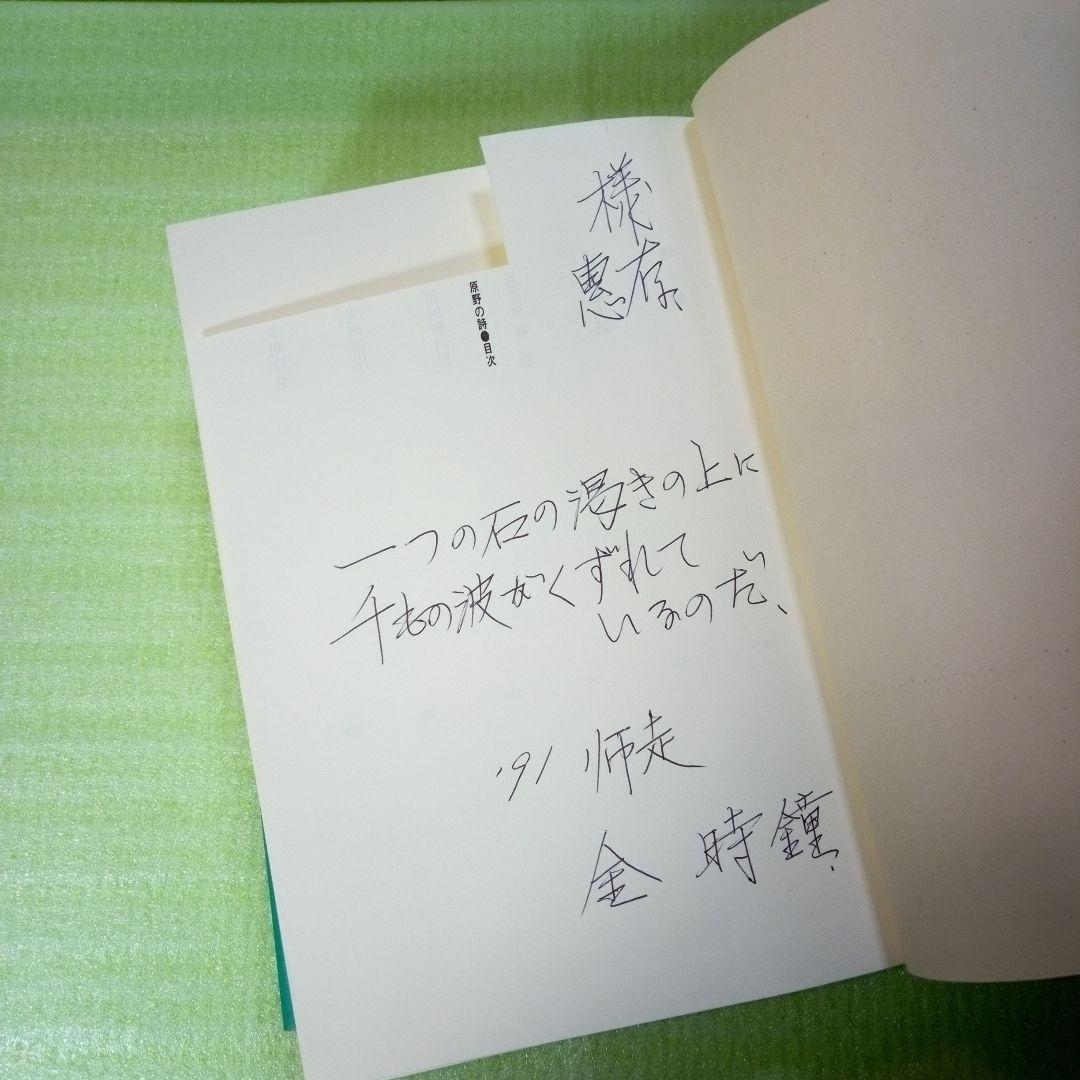 様
恵存、
原野の詩●目次
一つの石の渇きの上に
千もの波がくずれて
いるのだ、
'91 师走
金 時鐘